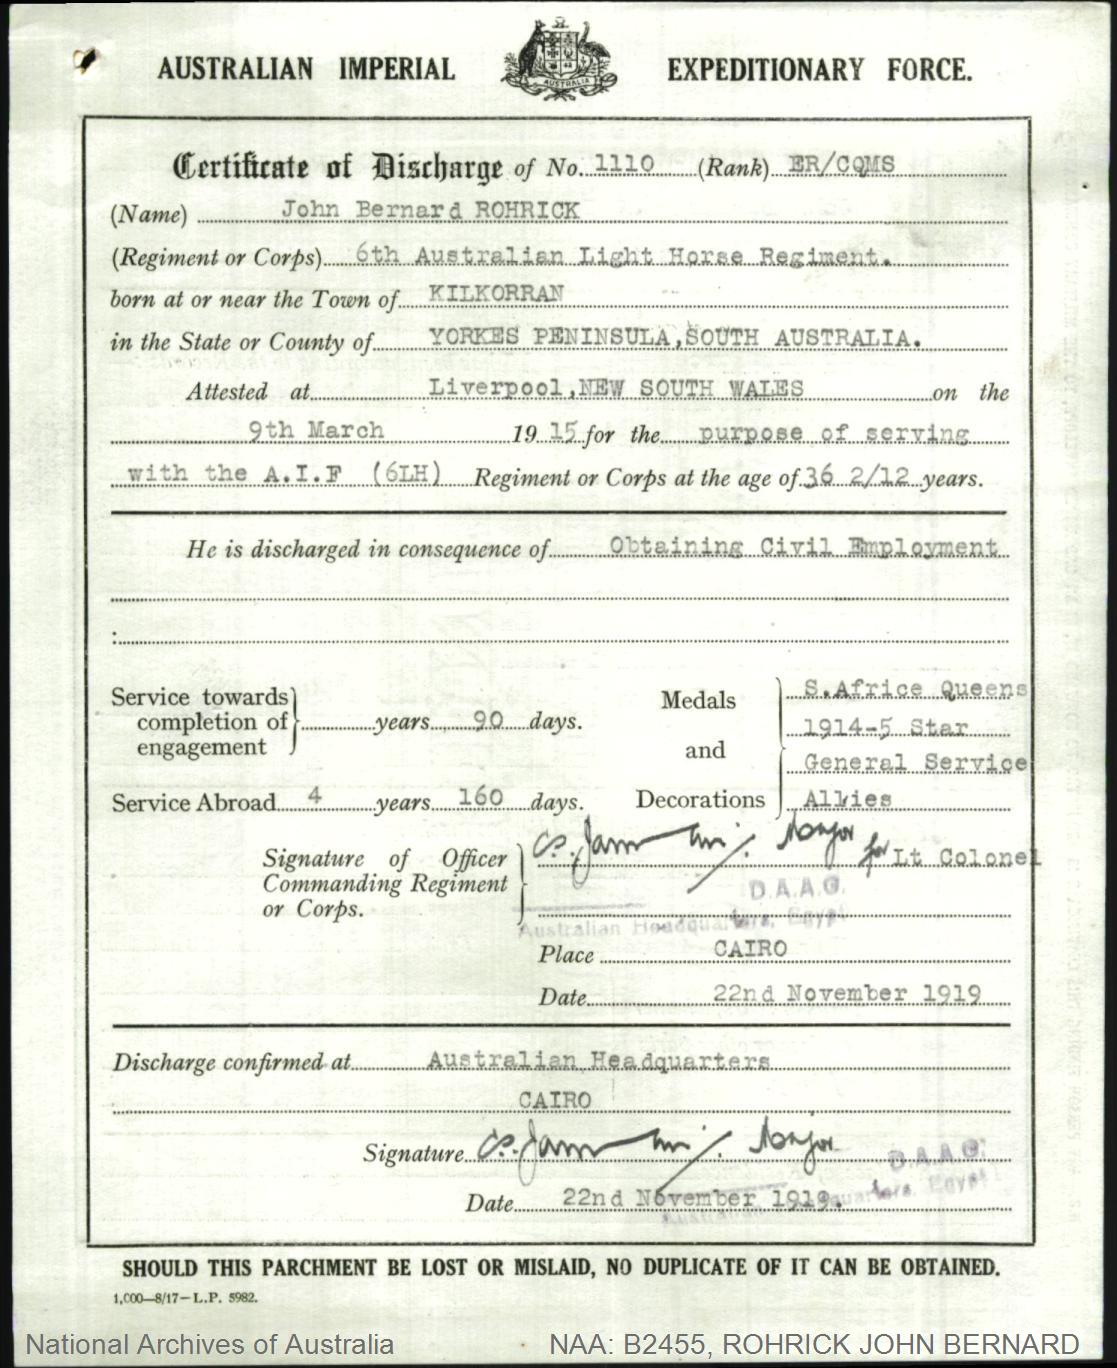 AUSTRALIAN IMPERIAL EXPEDITIONARY FORCE.
AUSTRALIA
Certificate of Discharge of No. 1110 (Rank) ER/CQMS
(Name) John Bernard ROHRICK
(Regiment or Corps) 6th Australian Light Horse Regiment.
born at or near the Town of KILKORRAN
in the State or County of YORKES PENINSULA, SOUTH AUSTRALIA.
Attested at Liverpool, NEW SOUTH WALES on the
9th March 1915 for the purpose of serving
with the A.I.F (6LH) Regiment or Corps at the age of 36 2/12 years.
He is discharged in consequence of Obtaining Civil Employment
Service towards completion of engagement years 90 days.
Service Abroad 4 years 160 days.
Medals and Decorations
S.Africe Queens
1914-5 Star
General Service
Allies
Signature of Officer Commanding Regiment or Corps.
Major for Lt Colonel
D.A.A.G.
Australian Headquarters, Egypt
Place CAIRO
Date 22nd November 1919
Discharge confirmed at Australian Headquarters
CAIRO
Signature Major
D.A.A.G.
Australian Headquarters, Egypt
Date 22nd November 1919.
SHOULD THIS PARCHMENT BE LOST OR MISLAID, NO DUPLICATE OF IT CAN BE OBTAINED.
1,000—8/17—L.P. 5982.
National Archives of Australia NAA: B2455, ROHRICK JOHN BERNARD